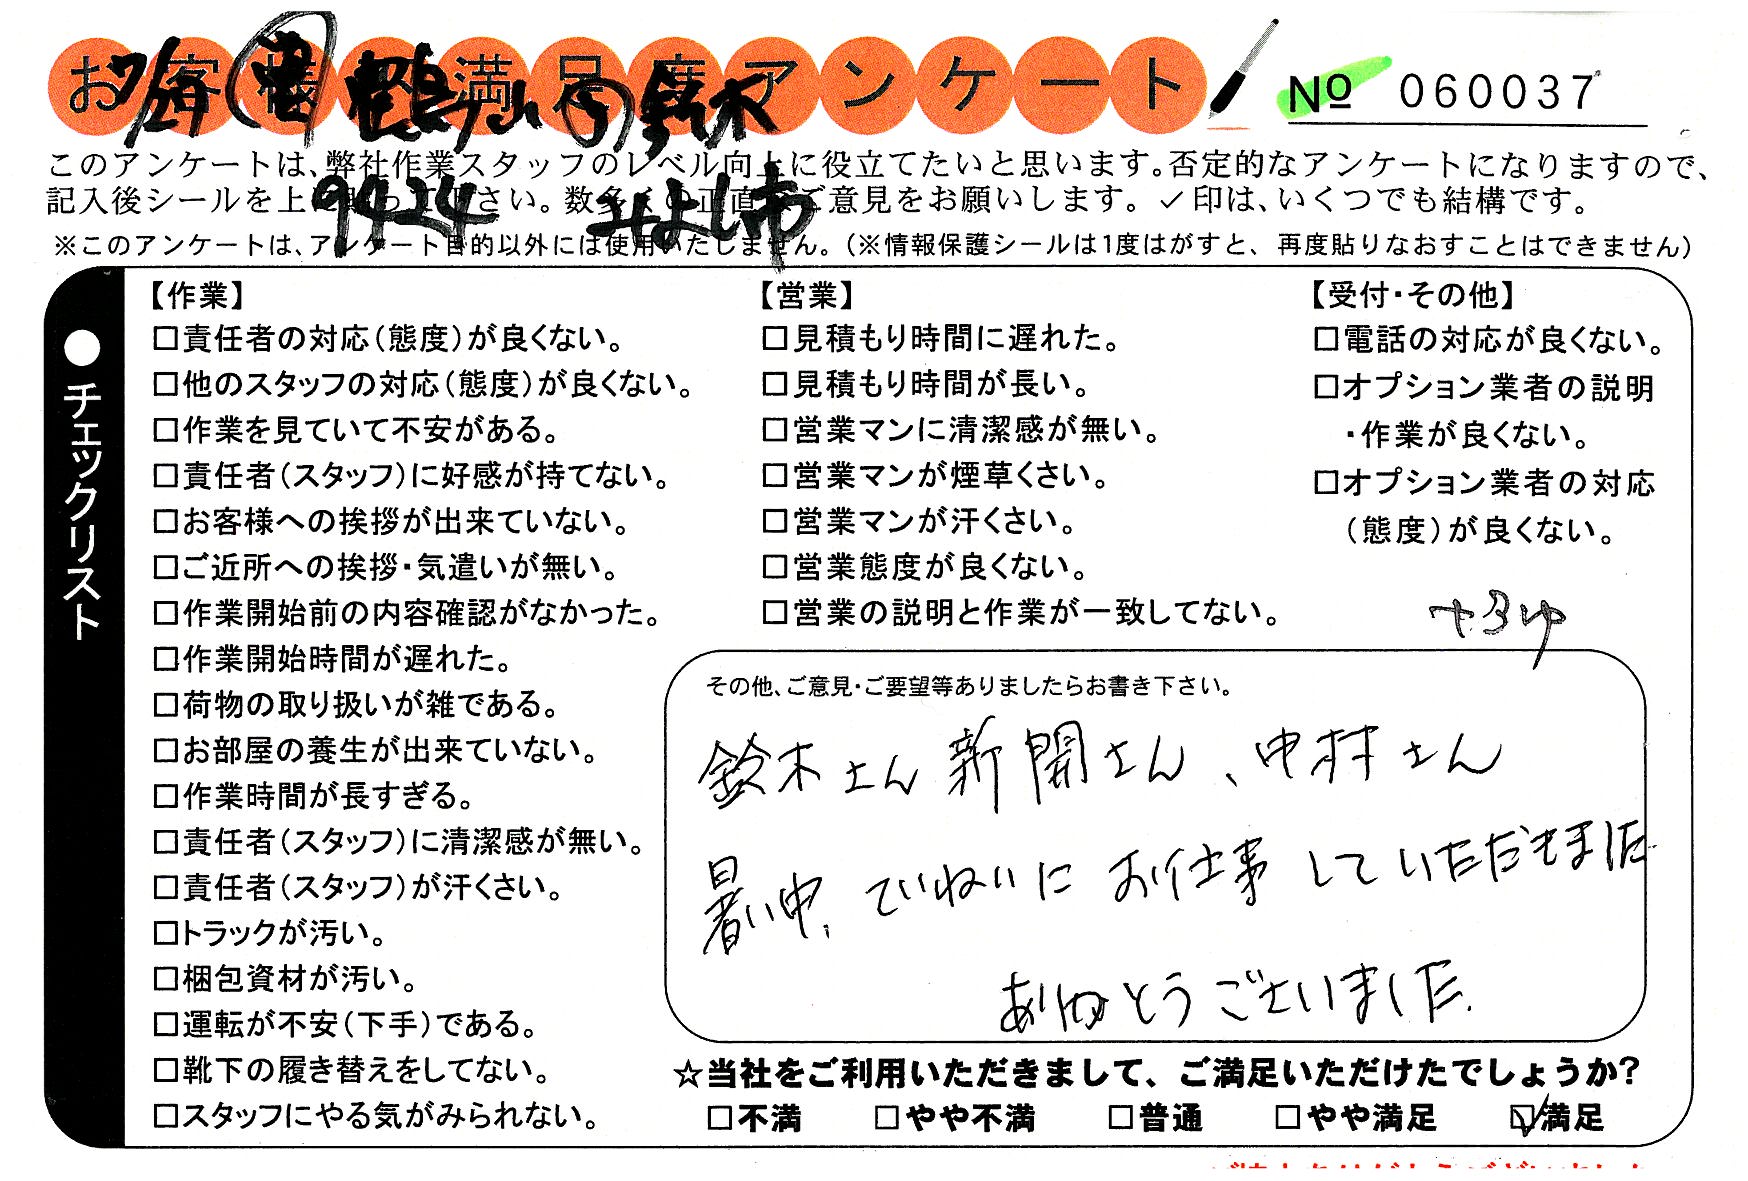 お客様満足度アンケート
№ 060037
鈴木
このアンケートは、弊社作業スタッフのレベル向上に役立てたいと思います。否定的なアンケートになりますので、
記入後シールを上に貼って下さい。数多くの正直なご意見をお願いします。✓印は、いくつでも結構です。
9424 みよし市
※このアンケートは、アンケート目的以外には使用いたしません。(※情報保護シールは1度はがすと、再度貼りなおすことはできません)
●チェックリスト
【作業】
□責任者の対応(態度)が良くない。
□他のスタッフの対応(態度)が良くない。
□作業を見ていて不安がある。
□責任者(スタッフ)に好感が持てない。
□お客様への挨拶が出来ていない。
□ご近所への挨拶・気遣いが無い。
□作業開始前の内容確認がなかった。
□作業開始時間が遅れた。
□荷物の取り扱いが雑である。
□お部屋の養生が出来ていない。
□作業時間が長すぎる。
□責任者(スタッフ)に清潔感が無い。
□責任者(スタッフ)が汗くさい。
□トラックが汚い。
□梱包資材が汚い。
□運転が不安(下手)である。
□靴下の履き替えをしてない。
□スタッフにやる気がみられない。
【営業】
□見積もり時間に遅れた。
□見積もり時間が長い。
□営業マンに清潔感が無い。
□営業マンが煙草くさい。
□営業マンが汗くさい。
□営業態度が良くない。
□営業の説明と作業が一致してない。
【受付・その他】
□電話の対応が良くない。
□オプション業者の説明
・作業が良くない。
□オプション業者の対応
(態度)が良くない。
その他、ご意見・ご要望等ありましたらお書き下さい。
鈴木さん 新開さん、中村さん
暑い中、ていねいに お仕事 していただきました
ありがとうございました。
☆当社をご利用いただきまして、ご満足いただけたでしょうか?
□不満 □やや不満 □普通 □やや満足 ☑満足